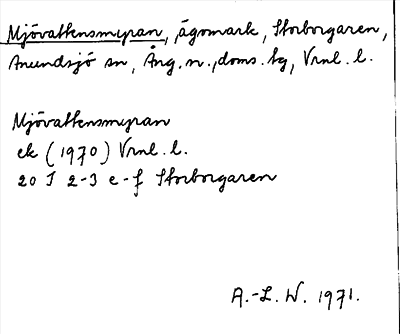 Mjövattensmyran, ägomark, Storborgaren,
Anundsjö sn, Ång. n., doms. bg, Vrnl. l.
Mjövattensmyran
ek (1970) Vrnl. l.
20 I 2-3 e-f Storborgaren
A.-L. W. 1971.